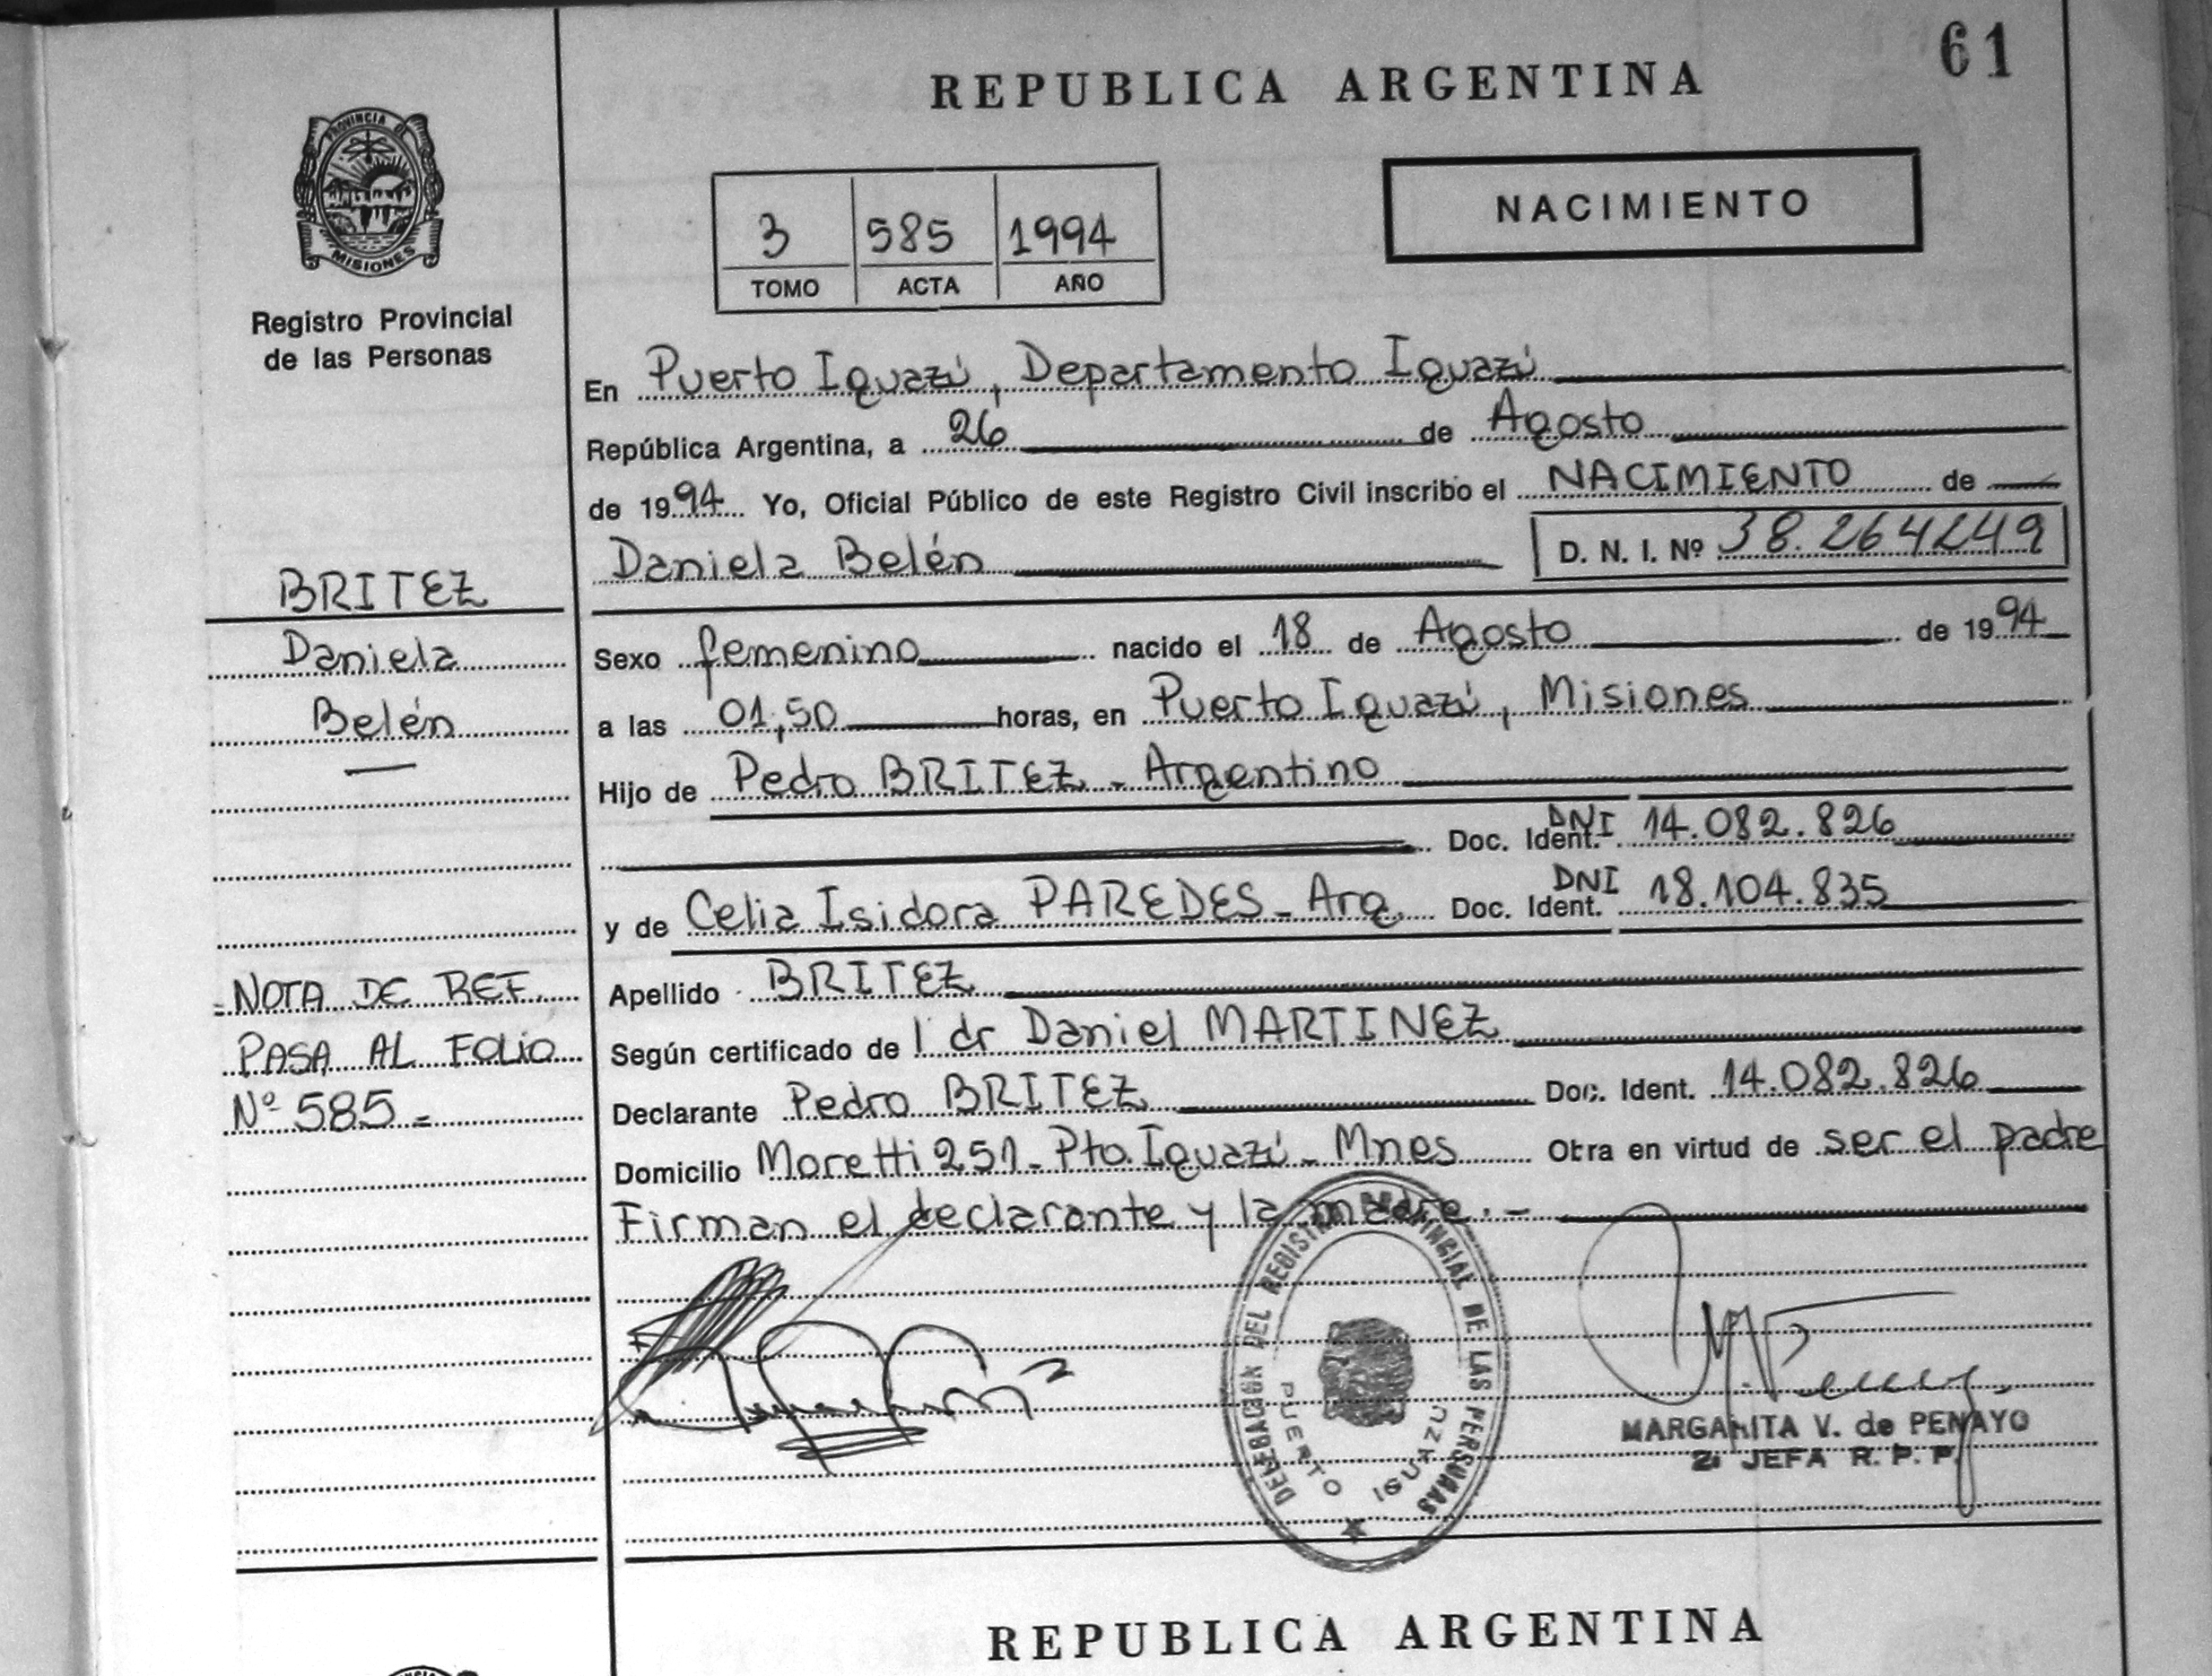 61
REPUBLICA ARGENTINA
PROVINCIA DE
MISIONES
Registro Provincial
de las Personas
3 585 1994
TOMO ACTA AÑO
NACIMIENTO
En Puerto Iguazú, Departamento Iguazú
República Argentina, a 26 de Agosto
de 1994 Yo, Oficial Público de este Registro Civil inscribo el NACIMIENTO de
Daniela Belén D. N. I. Nº 38.264249
BRITEZ
Daniela
Belén
Sexo femenino nacido el 18 de Agosto de 1994
a las 01,50 horas, en Puerto Iguazú, Misiones
Hijo de Pedro BRITEZ - Argentino
Doc. Ident. DNI 14.082.826
y de Celia Isidora PAREDES - Arg. Doc. Ident. DNI 18.104.835
Apellido BRITEZ
Según certificado de l dr Daniel MARTINEZ
Declarante Pedro BRITEZ Doc. Ident. 14.082.826
Domicilio Moretti 251 - Pto. Iguazú - Mnes Obra en virtud de ser el padre
Firman el declarante y la madre. -
= NOTA DE REF.
PASA AL FOLIO
Nº 585 =
DELEGACION DEL REGISTRO PROVINCIAL DE LAS PERSONAS
PUERTO IGUAZU
MARGARITA V. de PENAYO
2ª JEFA R. P. P.
REPUBLICA ARGENTINA